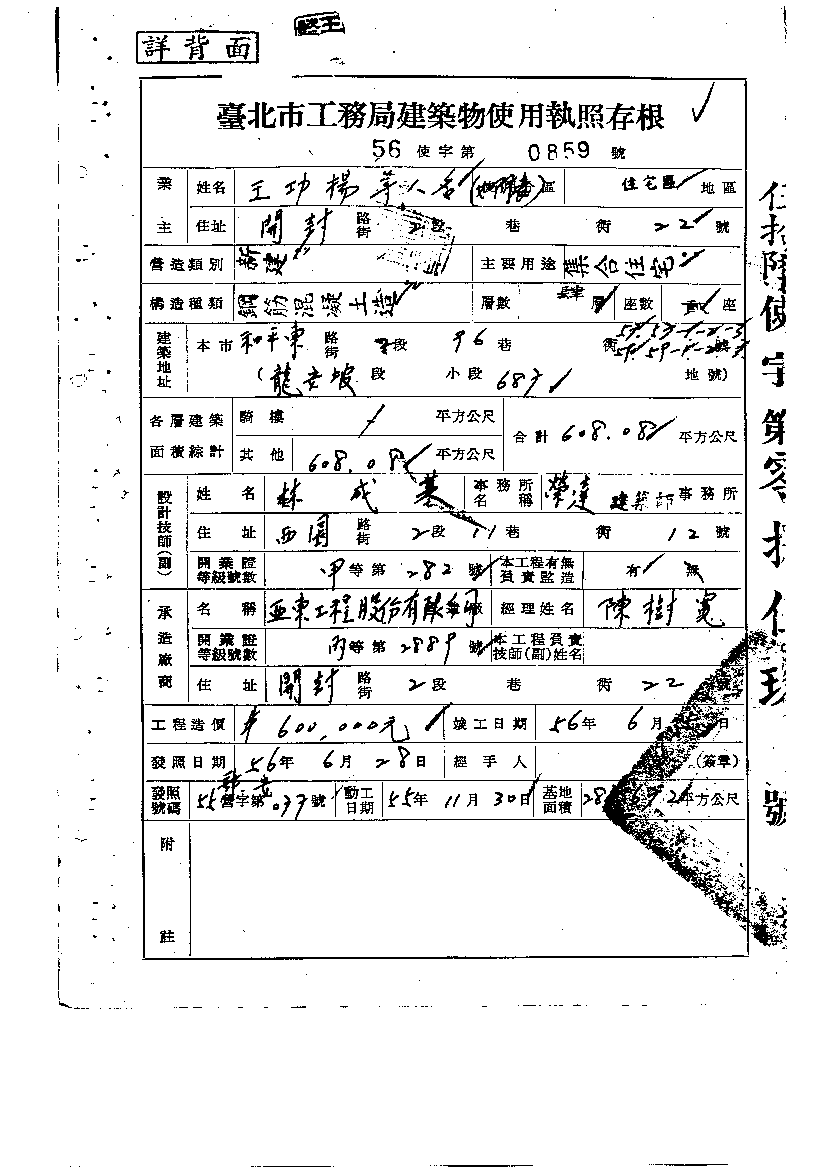 詳背面
臺北市工務局建築物使用執照存根
56 使字第 0859 號
業主 姓名 王功楊等八名 區 住宅區 地區
住址 開封 路街 2段 巷 衖 22 號
營造類別 新建 主要用途 集合住宅
構造種類 鋼筋混凝土造 層數 肆 層 座數 座
建築地址 本市 和平東 路街 段 96 巷 衖 號
(龍安坡 段 小段 683 地號)
各層建築面積綜計 騎樓 / 平方公尺 合計 608.08 平方公尺
其他 608.08 平方公尺
設計技師(副) 姓名 林成基 事務所名稱 榮達建築師事務所
住址 西園 路街 2段 11巷 衖 12號
開業證等級號數 甲等第 282 號 本工程有無負責監造 有 無
承造廠商 名稱 亞東工程股份有限公司 經理姓名 陳樹寬
開業證等級號數 丙等第 2889 號 本工程負責技師(副)姓名
住址 開封 路街 2段 巷 衖 22 號
工程造價 600,000元 竣工日期 56年 6月 日
發照日期 56年 6月 28日 經手人 (簽章)
發照號碼 55 營字第 037 號 動工日期 55年 11月 30日 基地面積 平方公尺
附註
伍拾陸使字第零捌伍玖號